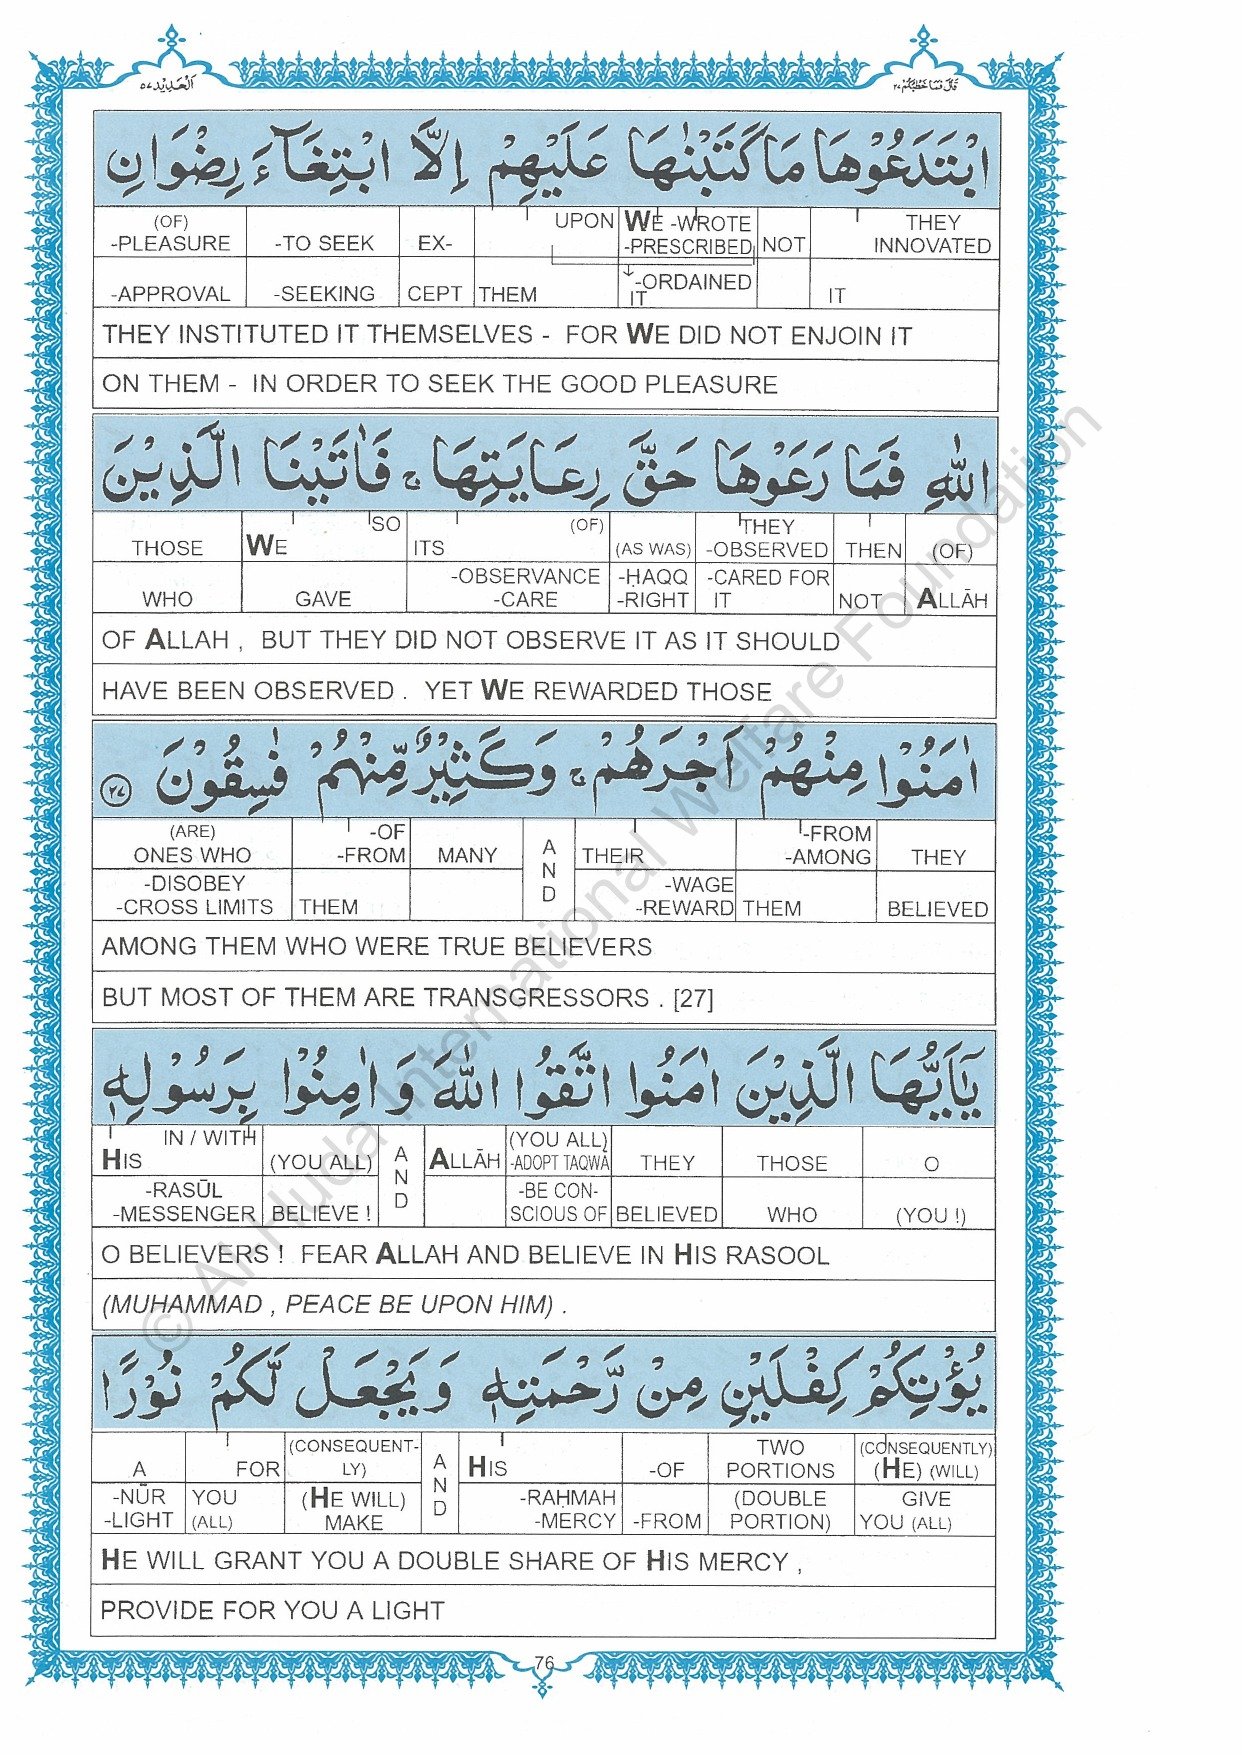 اَلْحَدِيْد ٥٧
قَالَ فَمَا خَطْبُكُمْ ٢٧
ابْتَدَعُوْهَا مَا كَتَبْنٰهَا عَلَيْهِمْ اِلَّا ابْتِغَآءَ رِضْوَانِ
(OF) UPON WE -WROTE THEY
-PLEASURE -TO SEEK EX- -PRESCRIBED NOT INNOVATED
-ORDAINED
-APPROVAL -SEEKING CEPT THEM IT IT
THEY INSTITUTED IT THEMSELVES - FOR WE DID NOT ENJOIN IT
ON THEM - IN ORDER TO SEEK THE GOOD PLEASURE
اللّٰهِ فَمَا رَعَوْهَا حَقَّ رِعَايَتِهَا ۚ فَاٰتَيْنَا الَّذِيْنَ
SO (OF) THEY
THOSE WE ITS (AS WAS) -OBSERVED THEN (OF)
-OBSERVANCE -ḤAQQ -CARED FOR
WHO GAVE -CARE -RIGHT IT NOT ALLĀH
OF ALLAH , BUT THEY DID NOT OBSERVE IT AS IT SHOULD
HAVE BEEN OBSERVED . YET WE REWARDED THOSE
اٰمَنُوْا مِنْهُمْ اَجْرَهُمْ ۚ وَكَثِيْرٌ مِّنْهُمْ فٰسِقُوْنَ ٢٧
(ARE) -OF -FROM
ONES WHO -FROM MANY AND THEIR -AMONG THEY
-DISOBEY -WAGE
-CROSS LIMITS THEM -REWARD THEM BELIEVED
AMONG THEM WHO WERE TRUE BELIEVERS
BUT MOST OF THEM ARE TRANSGRESSORS . [27]
يٰۤاَيُّهَا الَّذِيْنَ اٰمَنُوا اتَّقُوا اللّٰهَ وَاٰمِنُوْا بِرَسُوْلِهٖ
IN / WITH (YOU ALL)
HIS (YOU ALL) AND ALLĀH -ADOPT TAQWĀ THEY THOSE O
-RASŪL -BE CON-
-MESSENGER BELIEVE ! SCIOUS OF BELIEVED WHO (YOU !)
O BELIEVERS ! FEAR ALLAH AND BELIEVE IN HIS RASOOL
(MUHAMMAD , PEACE BE UPON HIM) .
يُؤْتِكُمْ كِفْلَيْنِ مِنْ رَّحْمَتِهٖ وَيَجْعَلْ لَّكُمْ نُوْرًا
(CONSEQUENT- TWO (CONSEQUENTLY)
A FOR LY) AND HIS -OF PORTIONS (HE) (WILL)
-NŪR YOU (HE WILL) -RAḤMAH (DOUBLE GIVE
-LIGHT (ALL) MAKE -MERCY -FROM PORTION) YOU (ALL)
HE WILL GRANT YOU A DOUBLE SHARE OF HIS MERCY ,
PROVIDE FOR YOU A LIGHT
76
© Al-Huda International Welfare Foundation